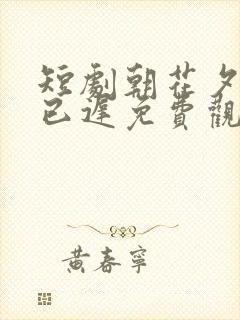 短劇朝花夕
已遲免費觀
黃春寧